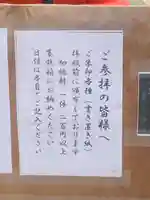 ご参拝の皆様へ
ご朱印各種(書き置き紙)
拝殿前に頒布しております
初穂料 一体 三百円以上
賽銭箱にお納めください
日付は各自でご記入ください